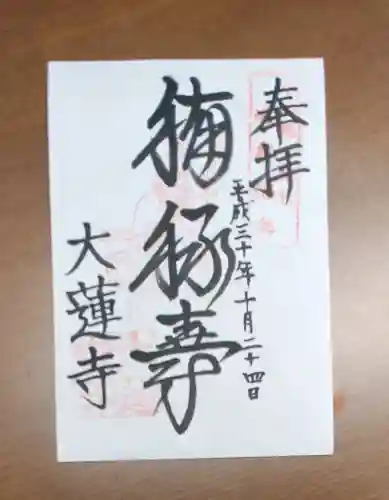 奉拝
平成三十年十月二十四日
福禄寿
大蓮寺